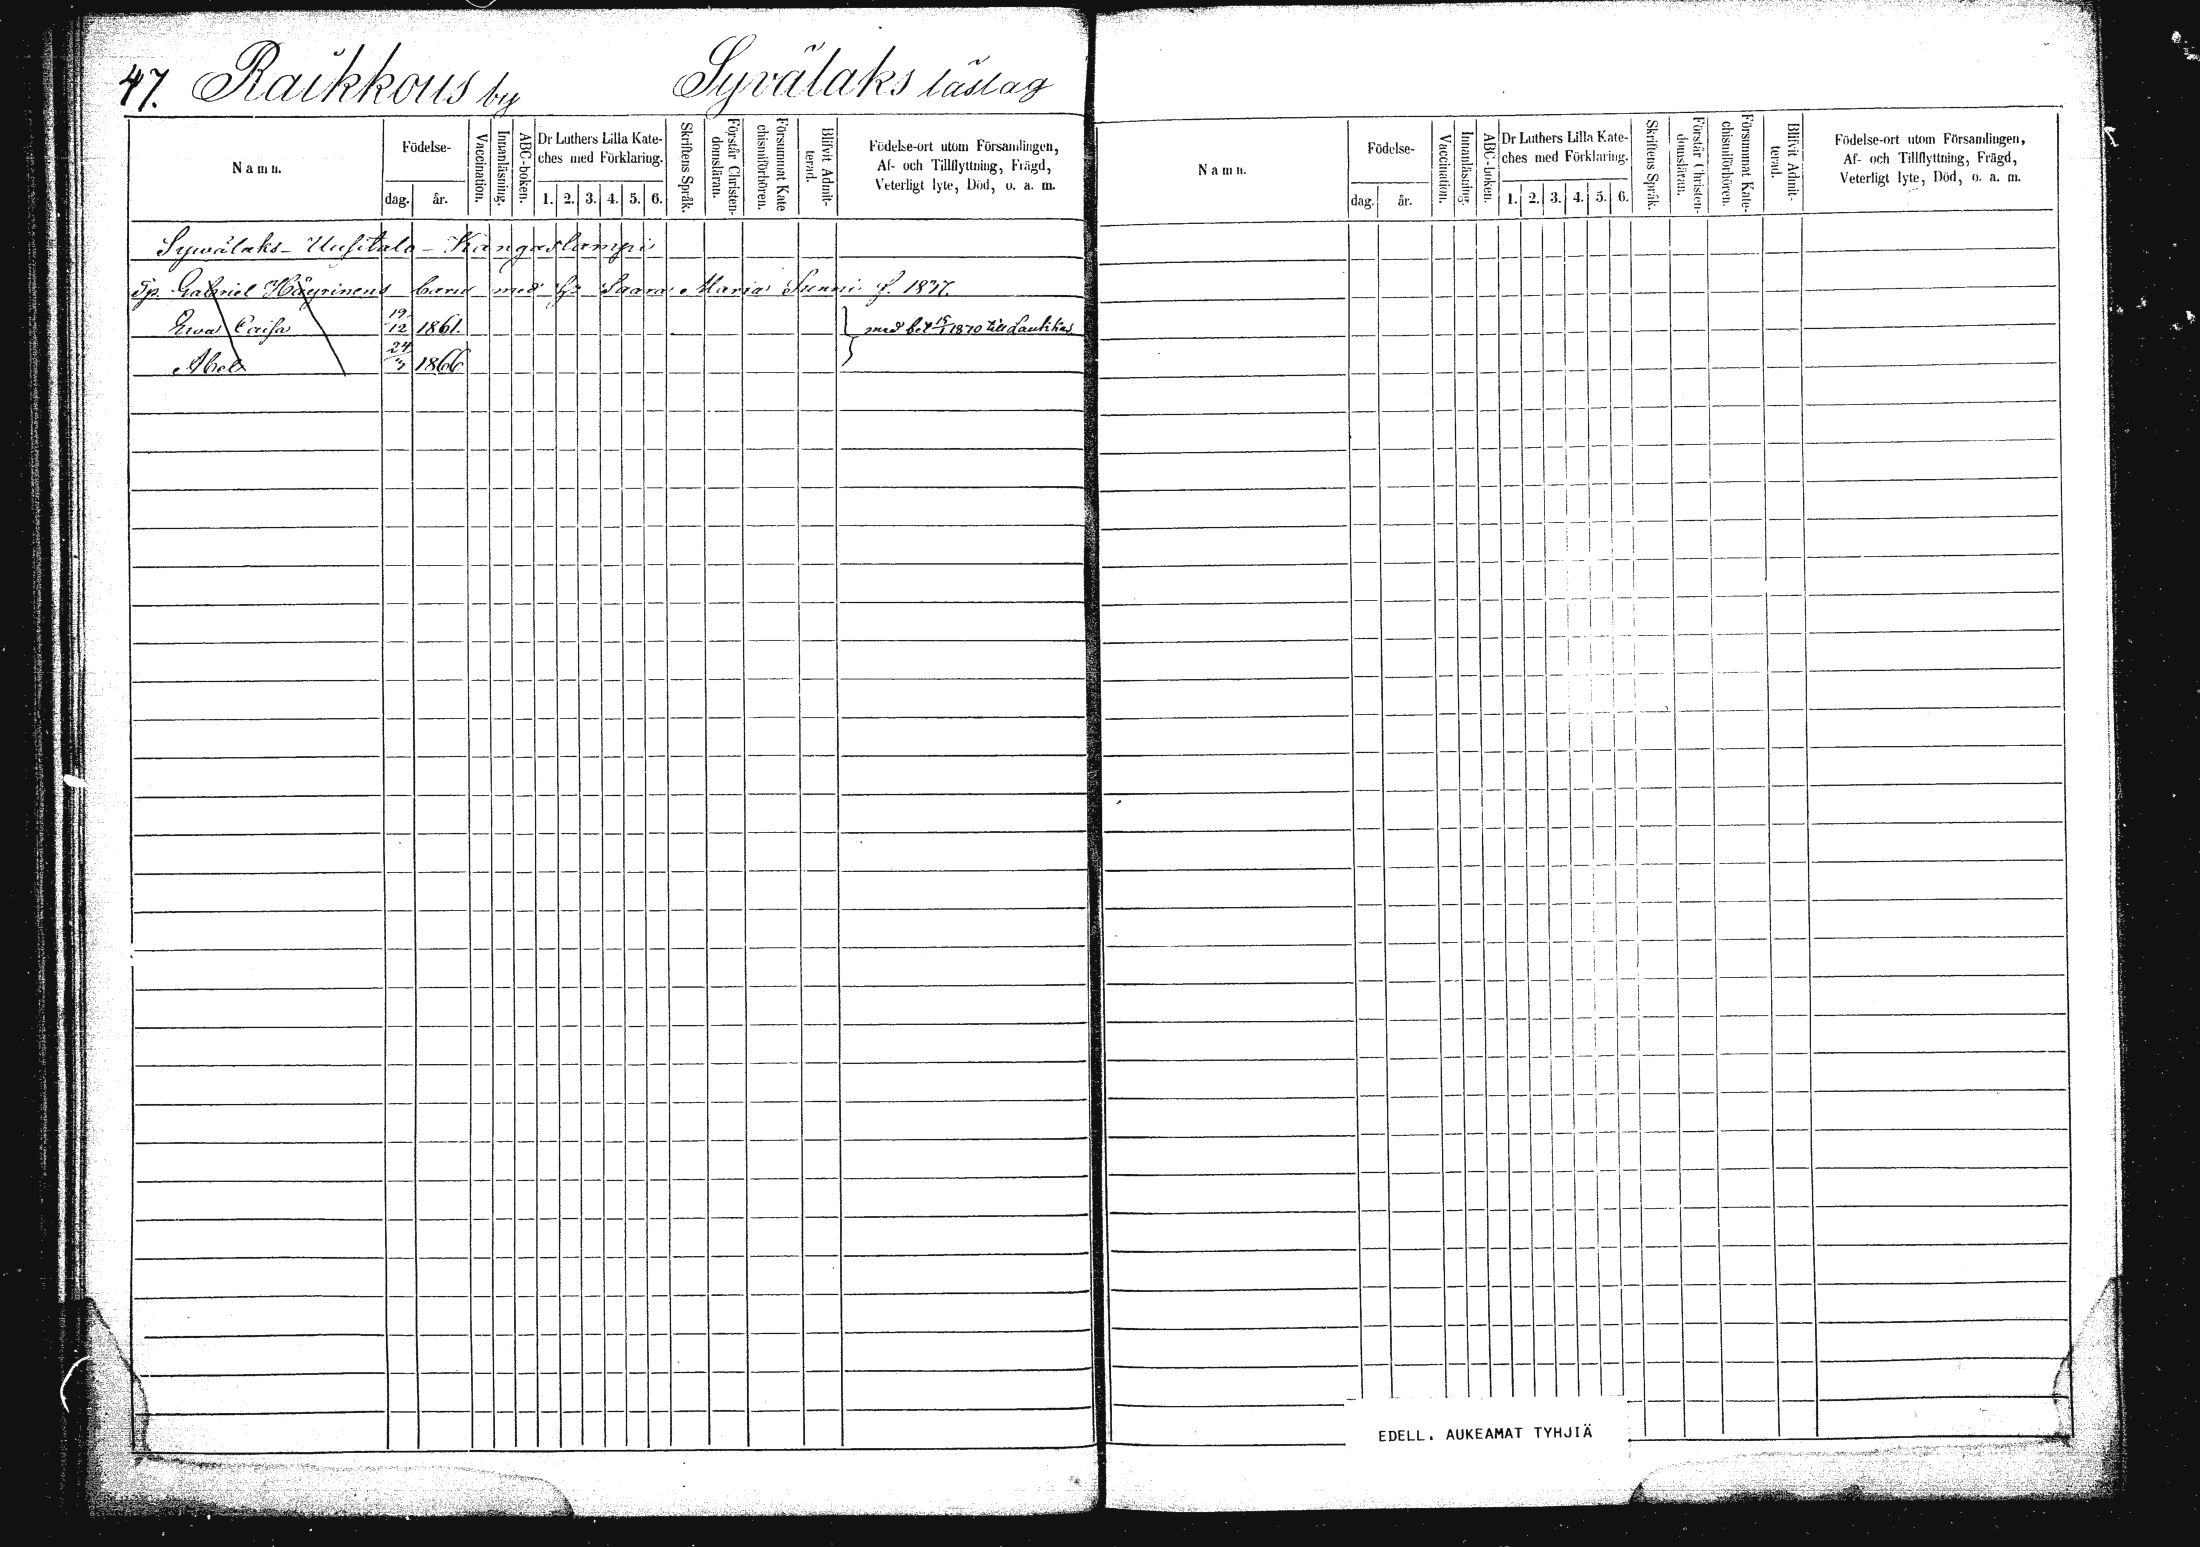 47. Raikkous by Syvälaks läslag
Namn. Födelse- dag. år. Vaccination. Innanläsning. ABC-boken. Dr Luthers Lilla Kateches med Förklaring. 1. 2. 3. 4. 5. 6. Skriftens Språk. Förstår Christendomsläran. Försummat Katechismiförhören. Blifvit Admitterad. Födelse-ort utom Församlingen, Af- och Tillflyttning, Frägd, Veterligt lyte, Död, o. a. m.
Syvälaks - Uusitalo - Kangaslampi
Sp. Gabriel Häyrinens barn med Saara Maria Sunni f. 1837.
Ewa Caisa 19/12 1861. med bet 15/1 1870 till
Abel 24/3 1866
Namn. Födelse- dag. år. Vaccination. Innanläsning. ABC-boken. Dr Luthers Lilla Kateches med Förklaring. 1. 2. 3. 4. 5. 6. Skriftens Språk. Förstår Christendomsläran. Försummat Katechismiförhören. Blifvit Admitterad. Födelse-ort utom Församlingen, Af- och Tillflyttning, Frägd, Veterligt lyte, Död, o. a. m.
EDELL. AUKEAMAT TYHJIÄ